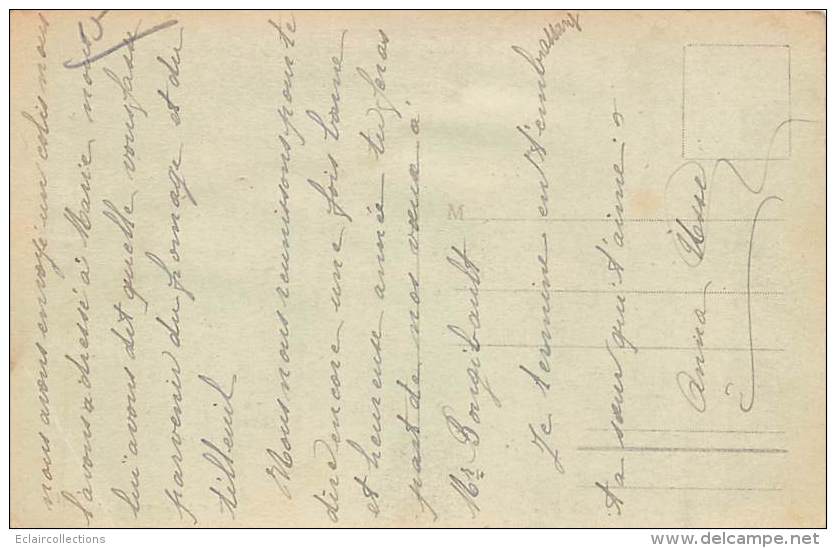 nous avons envoyé un colis nous
l'avons adressé à Marie nous
lui avons dit quelle vous fasse
parvenir du fromage et du
tilleuil
Nous nous reunissons pour te
dire encore une fois bonne
et heureuse année tu feras
part de nos vœux à
Mr Bongibault
Je termine en t'embrassant
ta sœur qui t'aime
Anna
M
Eclaircollections
www.delcampe.net